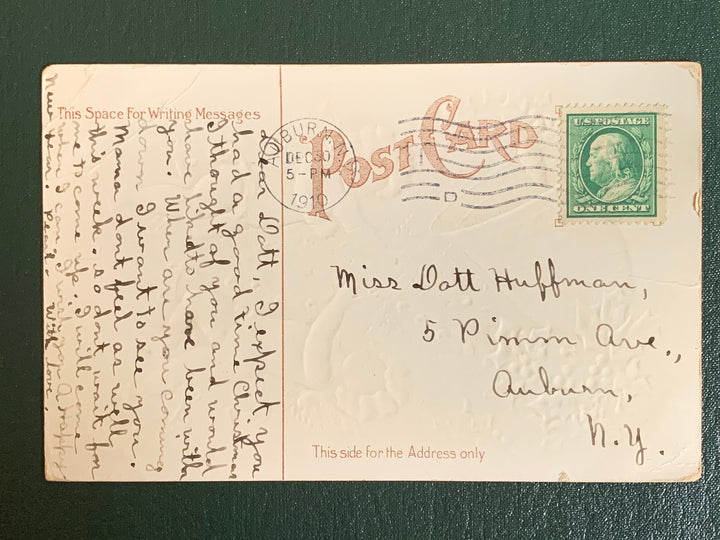 This Space For Writing Messages
POST CARD
AUBURN N.Y.
DEC 30
5-PM
1910
D
U.S. POSTAGE
ONE CENT
Dear Dott, I expect you
had a good time Christmas
I thought of you and would
have liked to have been with
you. When are you coming
down I want to see you.
Mama dont feel as well
this week, so dont wait for
me to come up. I will come
when I can. I wish you A Happy
New Year. With love,
Miss Dott Huffman,
5 Pimm Ave.,
Auburn,
N.Y.
This side for the Address only